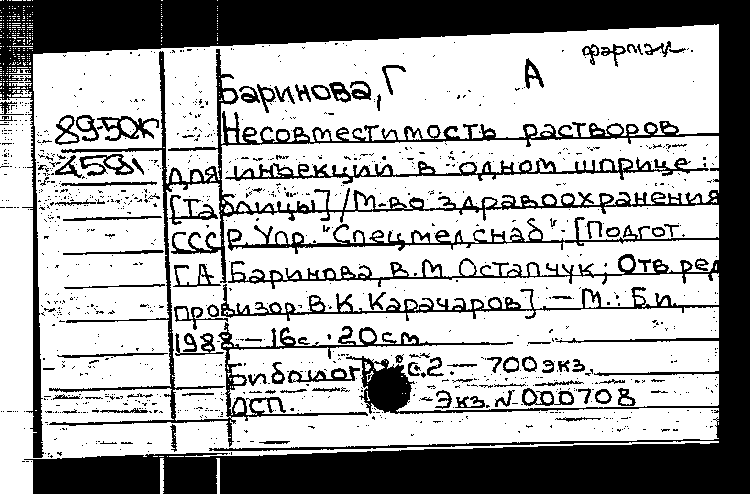 фармак.
Баринова, Г А
89-50К
4591
Несовместимость растворов
для инъекций в одном шприце:
[Таблицы] / М-во здравоохранения
СССР. Упр. "Спецмедснаб"; [Подгот.
Г.А. Баринова, В.М. Остапчук; Отв. ред
провизор В.К. Карачаров]. — М.: Б.и.,
1988. — 16с.; 20см.
Библиогр.: с.2. — 700 экз.
ДСП. Экз. N 000708